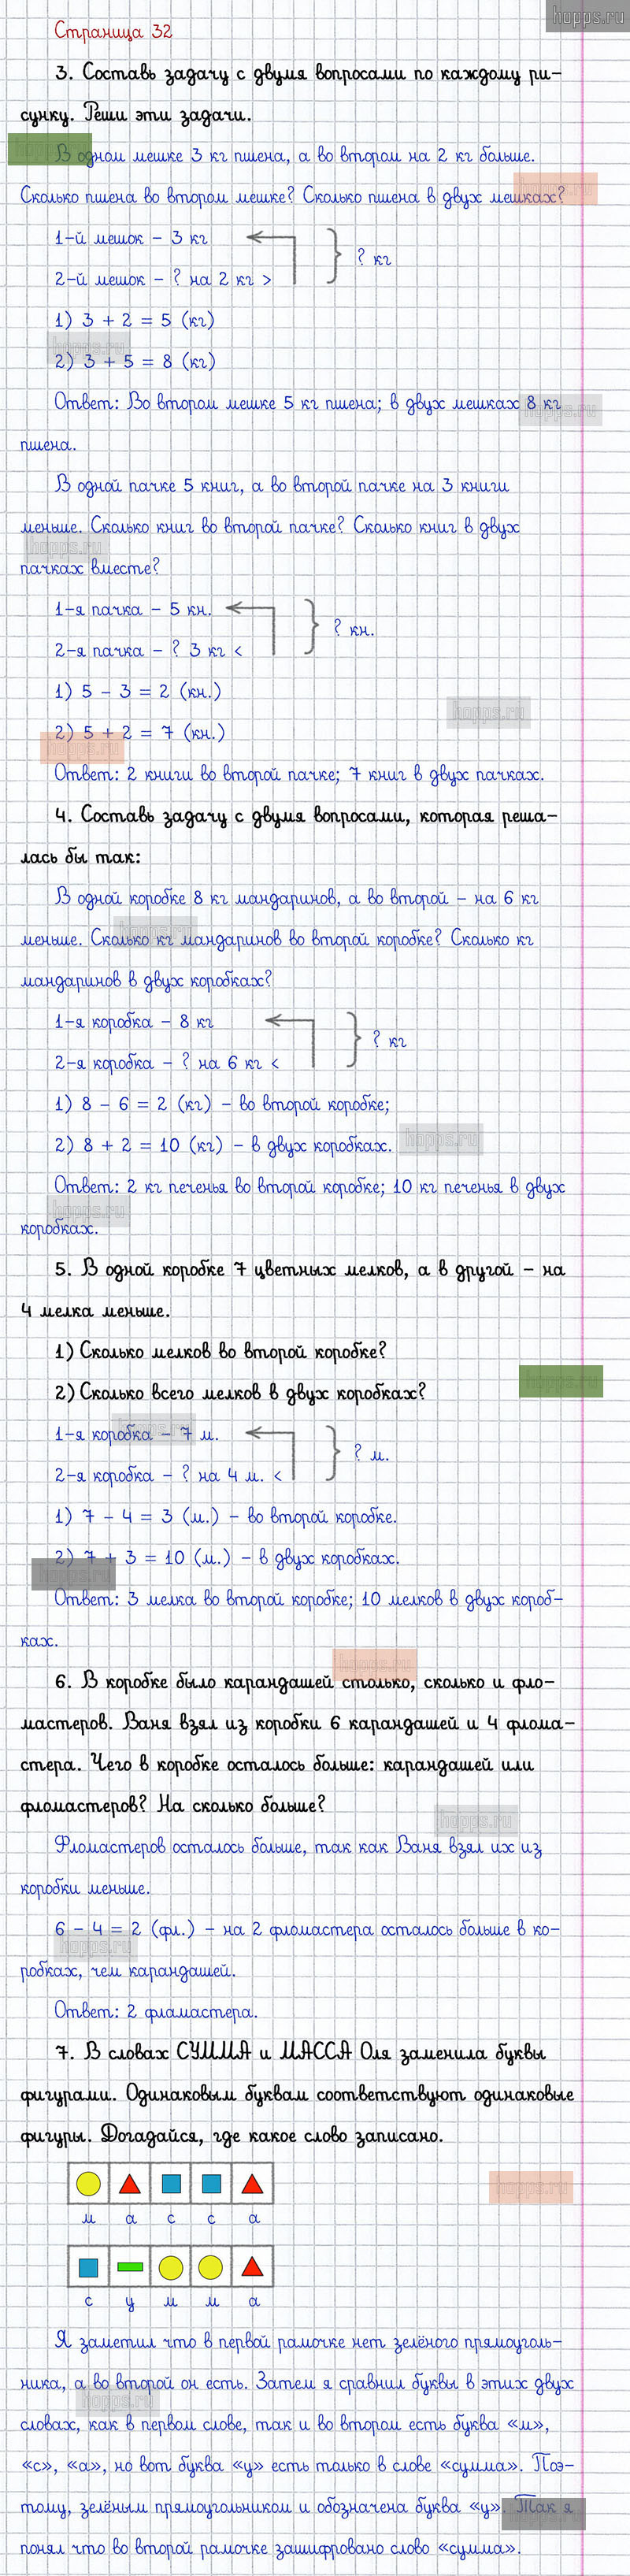 hopps.ru
Страница 32
3. Составь задачу с двумя вопросами по каждому ри-
сунку. Реши эти задачи.
В одном мешке 3 кг пшена, а во втором на 2 кг больше.
Сколько пшена во втором мешке? Сколько пшена в двух мешках?
1-й мешок - 3 кг
? кг
2-й мешок - ? на 2 кг >
1) 3 + 2 = 5 (кг)
hopps.ru
2) 3 + 5 = 8 (кг)
Ответ: Во втором мешке 5 кг пшена; в двух мешках 8 кг
hopps.ru
пшена.
В одной пачке 5 книг, а во второй пачке на 3 книги
меньше. Сколько книг во второй пачке? Сколько книг в двух
hopps.ru
пачках вместе?
1-я пачка - 5 кн.
? кн.
2-я пачка - ? 3 кг <
1) 5 - 3 = 2 (кн.)
hopps.ru
2) 5 + 2 = 7 (кн.)
hopps.ru
Ответ: 2 книги во второй пачке; 7 книг в двух пачках.
4. Составь задачу с двумя вопросами, которая реша-
лась бы так:
В одной коробке 8 кг мандаринов, а во второй - на 6 кг
hopps.ru
меньше. Сколько кг мандаринов во второй коробке? Сколько кг
мандаринов в двух коробках?
1-я коробка - 8 кг
? кг
2-я коробка - ? на 6 кг <
1) 8 - 6 = 2 (кг) - во второй коробке;
2) 8 + 2 = 10 (кг) - в двух коробках.
hopps.ru
Ответ: 2 кг печенья во второй коробке; 10 кг печенья в двух
hopps.ru
коробках.
5. В одной коробке 7 цветных мелков, а в другой - на
4 мелка меньше.
1) Сколько мелков во второй коробке?
hopps.ru
2) Сколько всего мелков в двух коробках?
hopps.ru
1-я коробка - 7 м.
? м.
2-я коробка - ? на 4 м. <
1) 7 - 4 = 3 (м.) - во второй коробке.
2) 7 + 3 = 10 (м.) - в двух коробках.
hopps.ru
Ответ: 3 мелка во второй коробке; 10 мелков в двух короб-
ках.
hopps.ru
6. В коробке было карандашей столько, сколько и фло-
мастеров. Ваня взял из коробки 6 карандашей и 4 флома-
стера. Чего в коробке осталось больше: карандашей или
фломастеров? На сколько больше?
hopps.ru
Фломастеров осталось больше, так как Ваня взял их из
коробки меньше.
6 - 4 = 2 (фл.) - на 2 фломастера осталось больше в ко-
hopps.ru
робках, чем карандашей.
Ответ: 2 фламастера.
7. В словах СУММА и МАССА Оля заменила буквы
фигурами. Одинаковым буквам соответствуют одинаковые
фигуры. Догадайся, где какое слово записано.
hopps.ru
м а с с а
с у м м а
Я заметил что в первой рамочке нет зелёного прямоуголь-
ника, а во второй он есть. Затем я сравнил буквы в этих двух
hopps.ru
словах, как в первом слове, так и во втором есть буква «м»,
«с», «а», но вот буква «у» есть только в слове «сумма». Поэ-
тому, зелёным прямоугольником и обозначена буква «у». Так я
hopps.ru
понял что во второй рамочке зашифровано слово «сумма».